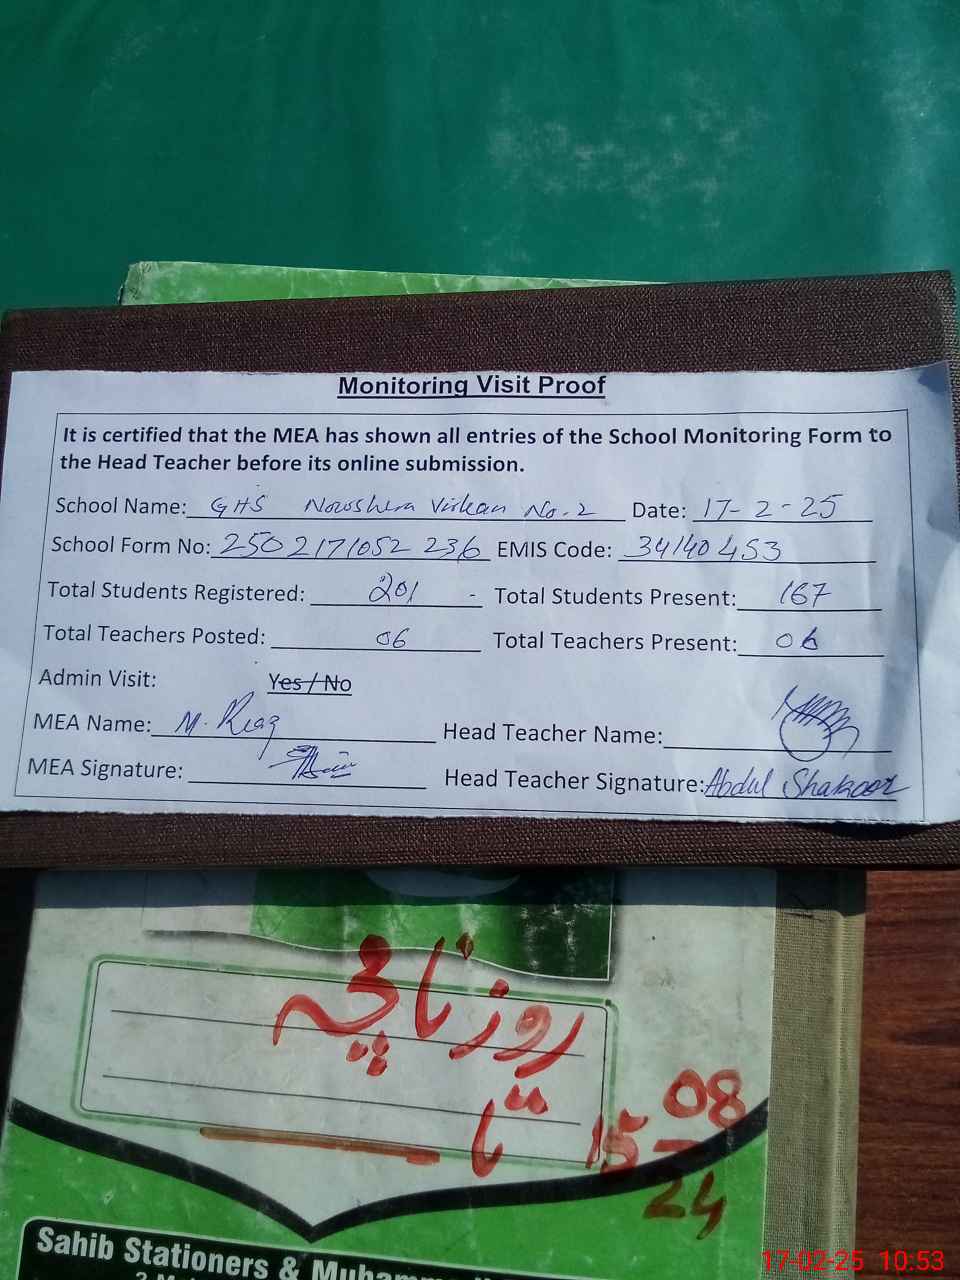 Monitoring Visit Proof
It is certified that the MEA has shown all entries of the School Monitoring Form to
the Head Teacher before its online submission.
School Name: GHS Nowshera Virkan No.2 Date: 17-2-25
School Form No: 2502171052236 EMIS Code: 34140453
Total Students Registered: 201 Total Students Present: 167
Total Teachers Posted: 06 Total Teachers Present: 06
Admin Visit: Yes / No
MEA Name: M. Riaz Head Teacher Name:
MEA Signature: Head Teacher Signature: Abdul Shakoor
روزنامچہ
08
15 تا
24
Sahib Stationers &
17-02-25 10:53